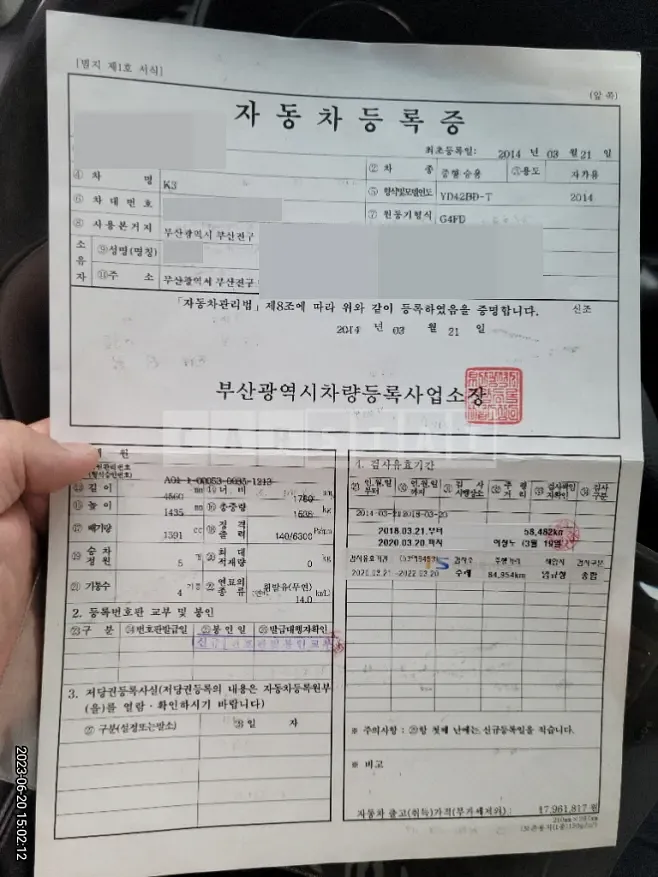 [별지 제1호 서식]
(앞 쪽)
자동차등록증
최초등록일: 2014 년 03 월 21 일
④ 차 명 K3 ② 차 종 중형 승용 ③용도 자가용
⑥ 차 대 번 호 ⑤ 형식및모델연도 YD42BD-T 2014
⑧ 사용본거지 부산광역시 부산진구 ⑦ 원동기형식 G4FD
소유자 ⑨성명(명칭)
⑪주 소 부산광역시 부산진구
「자동차관리법」제8조에 따라 위와 같이 등록하였음을 증명합니다. 신조
2014 년 03 월 21 일
부산광역시차량등록사업소장
제 원
1. 검사유효기간
A04-1-00053-0035-1213
길 이 4560 mm 너 비 1780 mm
높 이 1435 mm 총중량
배기량 1591 cc 정격출력 140/6300
승차정원 5 명 최대적재량 0 kg
기통수 4 기통 연료의종류 휘발유(무연)
14.0 km/L
연.월.일부터 연.월.일까지 검 사 시행장소 주행거리 검사책임자확인 검사구분
2014-03-21 2018-03-20
2018.03.21.부터 58,482km
2020.03.20.까지 (3월 19일)
검사유효기간 검사소 주행거리 책임자 검사구분
2022.03.20 수매 84,954km 종합
2. 등록번호판 교부 및 봉인
구 분 번호판발급일 봉인일 발급대행자확인
3. 저당권등록사실(저당권등록의 내용은 자동차등록원부(을)를 열람·확인하시기 바랍니다)
구분(설정또는말소) 일 자
※ 주의사항 : ㉙항 첫째 난에는 신규등록일을 적습니다.
※ 비고
자동차 출고(취득)가격(부가세제외) : 17,961,817 원
2023-06-20 15:02:12